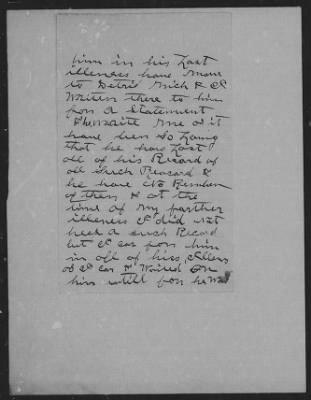 him in his Last
illeness have move
to Detrs Mich & I
Writen there to him
fon a Statement
Me as it
have ben So Long
that he have Last
all of his Record of
all Such Reacord &
he have No Rember
of them & at the
time of my farther
illeness I did not
need a such Record
but I car fon him
in all of his illens
as I car & Waited on
him untill fon he Was